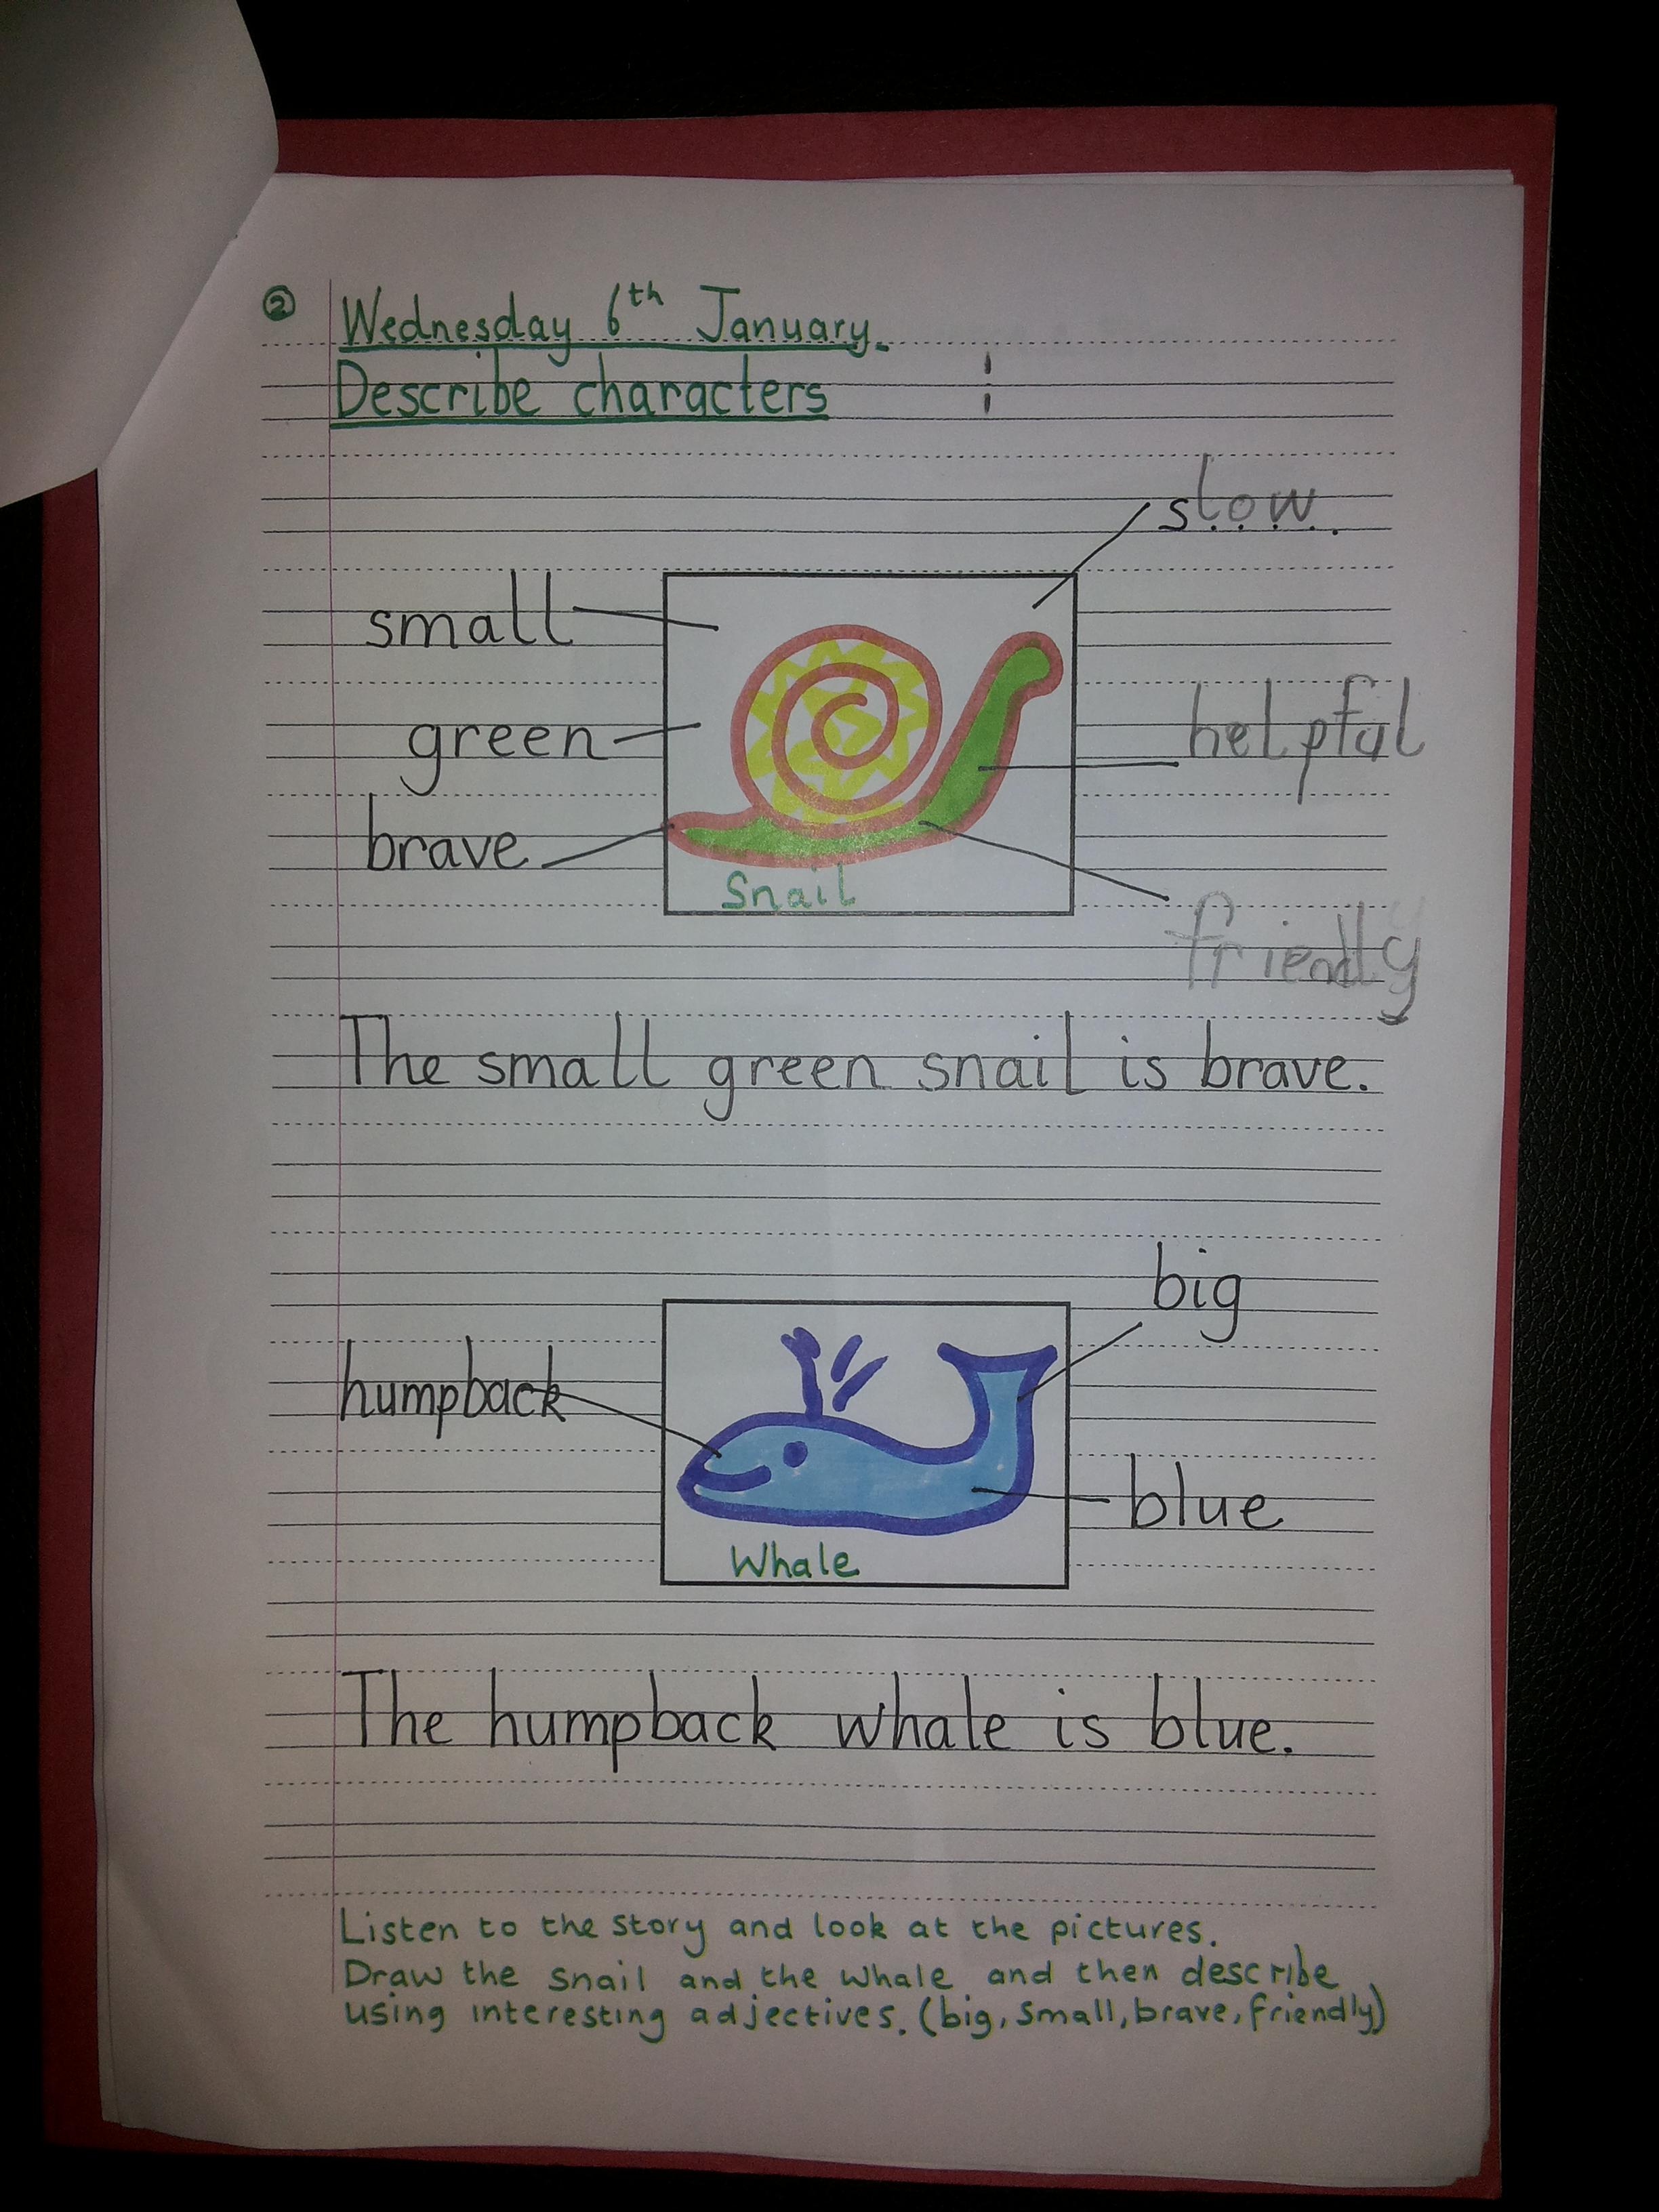 ② Wednesday 6th January.
Describe characters
slow.
small
green
helpful
brave
Snail
friendly
The small green snail is brave.
big
humpback
blue
Whale
The humpback whale is blue.
Listen to the story and look at the pictures.
Draw the snail and the whale and then describe
using interesting adjectives. (big, small, brave, friendly)